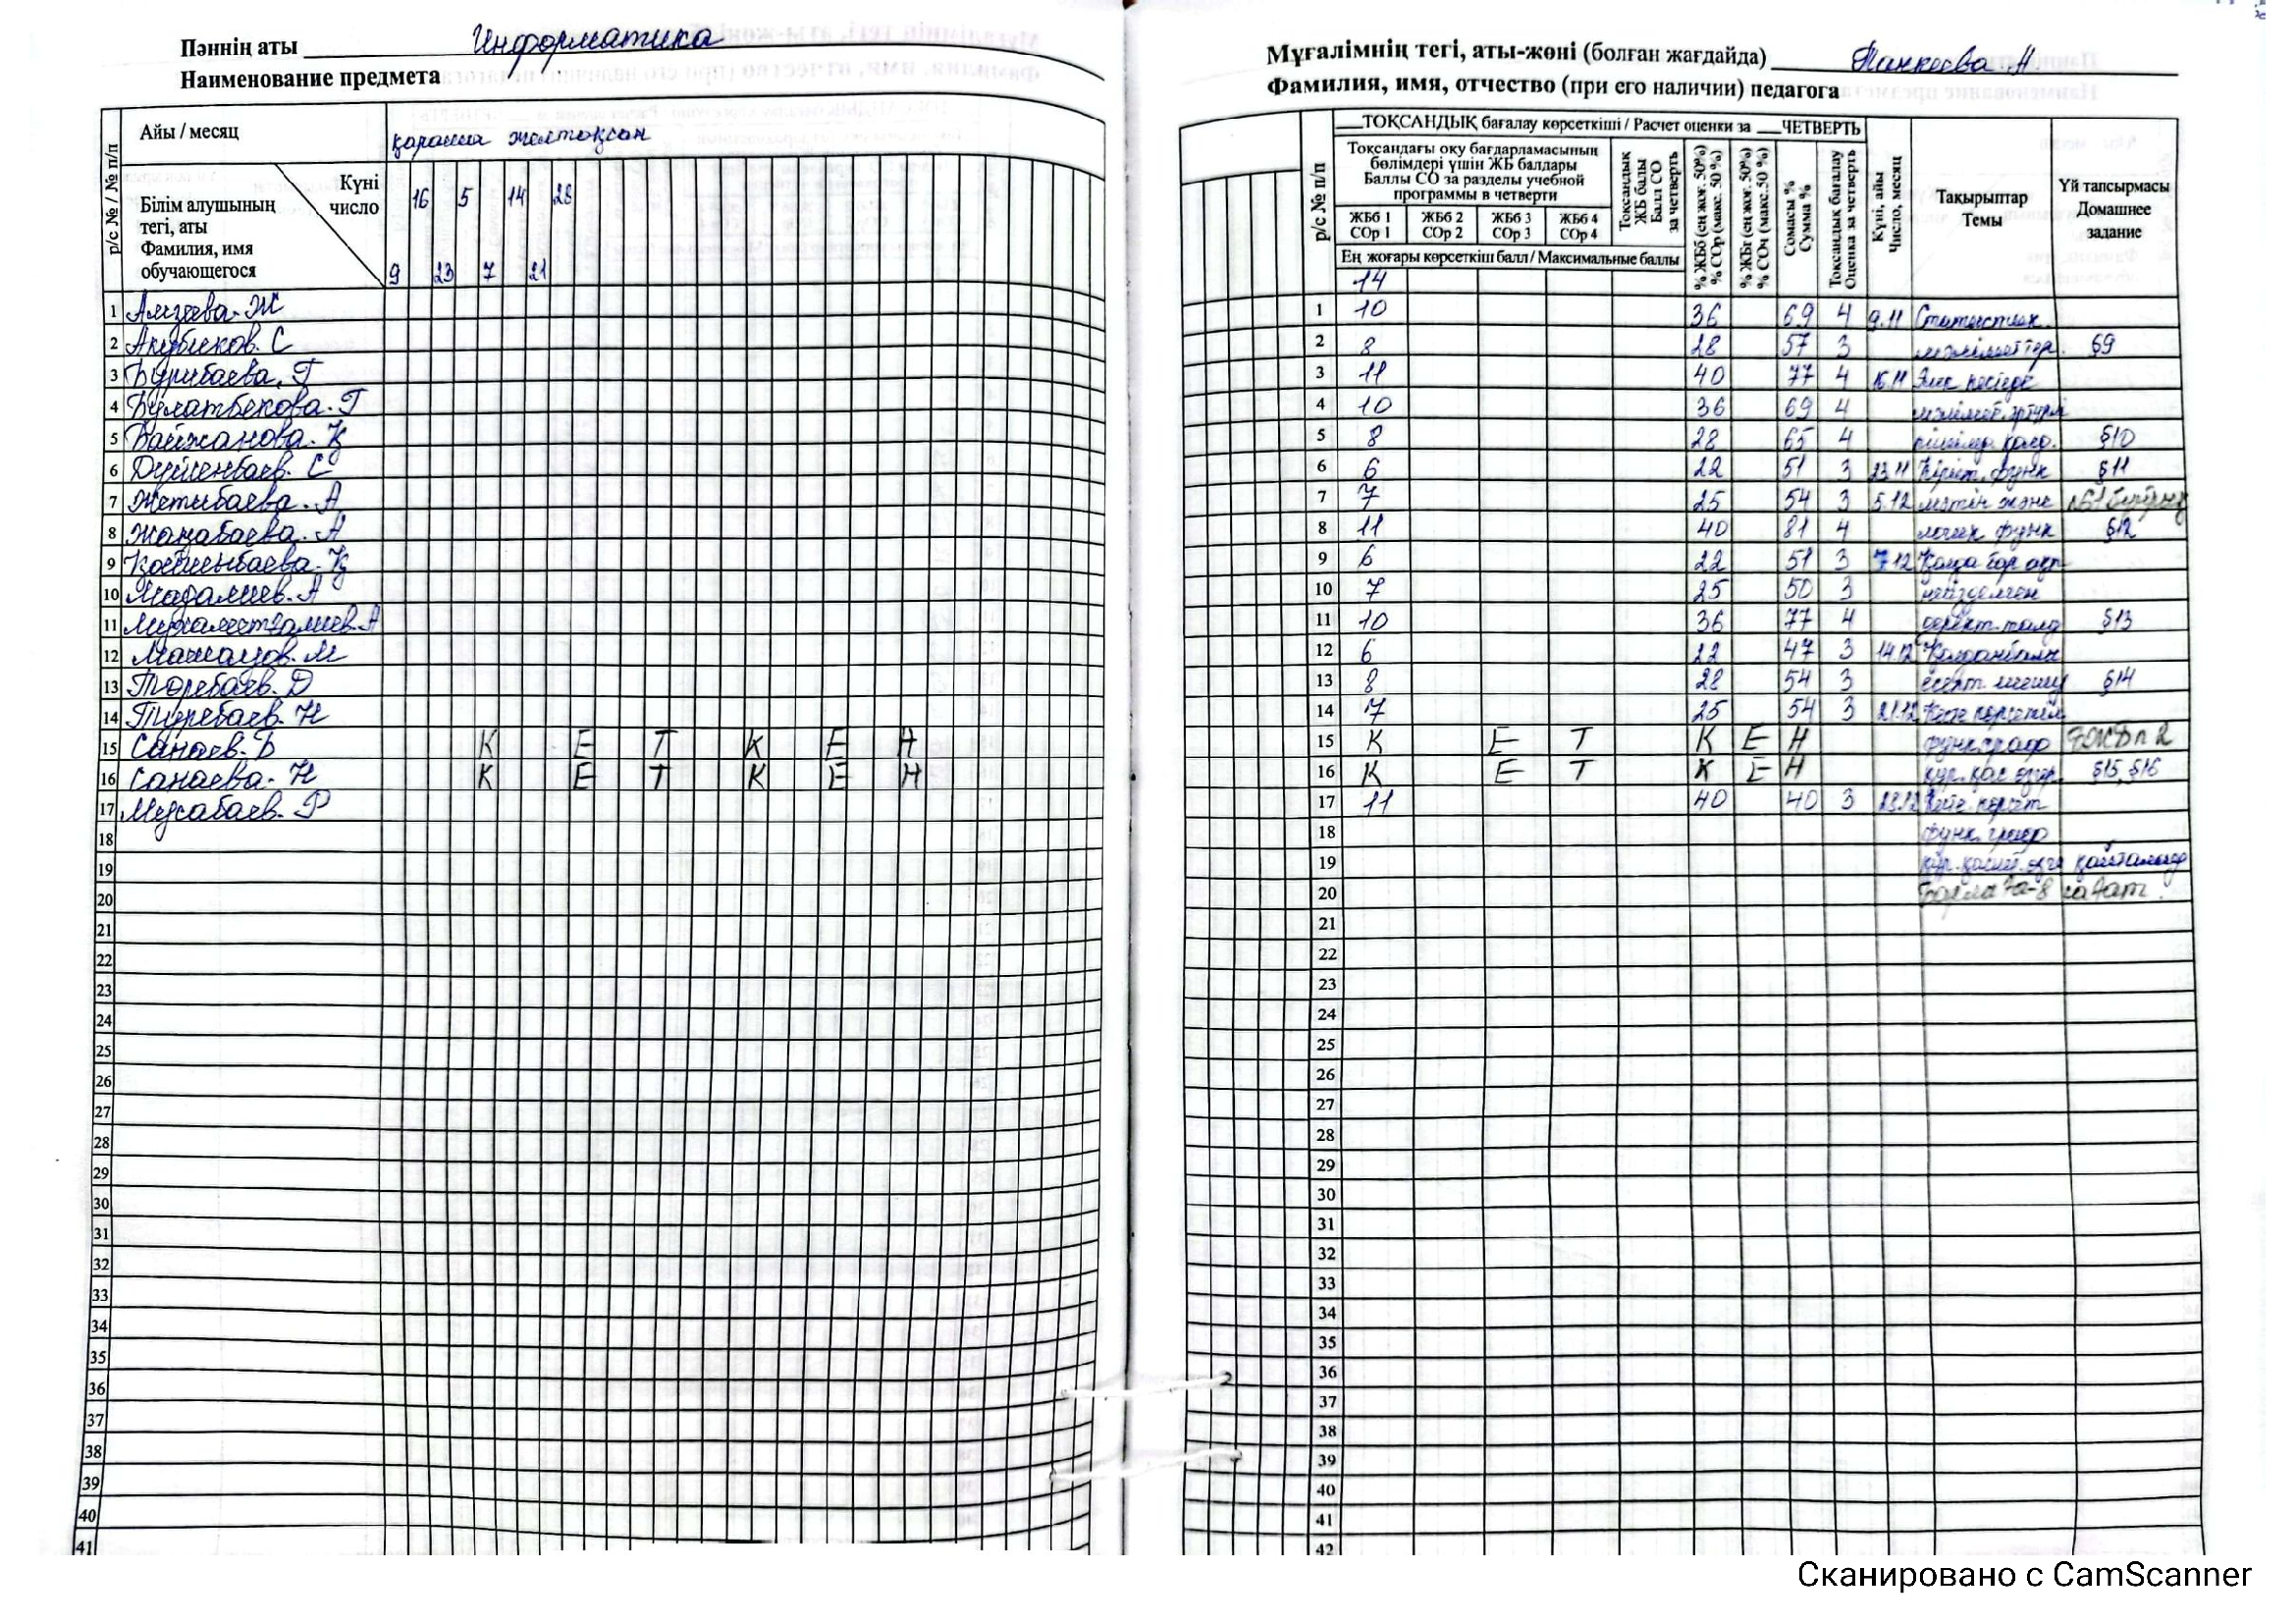 Пәннің аты Информатика
Наименование предмета
р/с № / № п/п
Айы / месяц қараша желтоқсан
Күні
число
Білім алушының
тегі, аты
Фамилия, имя
обучающегося
16 5 14 28
9 23 7 21
1 Ж
2 С
3 Бурибаева. Г
4 Булатбекова. Г
5 Байжанова. Қ
6 Дүйсенбаев. С
7 Жетибаева. А
8 Жаңабаева. А
9 Қ
10 Мадалиев. А
11 А
12 М
13 Төребаев. Д
14 Туребаев. Н
15 Санаев. Б К Е Т К Е Н
16 Санаева. Н К Е Т К Е Н
17 Мусабаев. Р
18
19
20
21
22
23
24
25
26
27
28
29
30
31
32
33
34
35
36
37
38
39
40
41
Мұғалімнің тегі, аты-жөні (болған жағдайда)
Фамилия, имя, отчество (при его наличии) педагога
р/с № п/п
___ТОҚСАНДЫҚ бағалау көрсеткіші / Расчет оценки за ___ЧЕТВЕРТЬ
Тоқсандағы оқу бағдарламасының
бөлімдері үшін ЖБ балдары
Баллы СО за разделы учебной
программы в четверти
ЖБб 1 ЖБб 2 ЖБб 3 ЖБб 4
СОр 1 СОр 2 СОр 3 СОр 4
Тоқсандық
ЖБ балы
Балл СО
за четверть
Ең жоғары көрсеткіш балл / Максимальные баллы
14
% ЖБб (ең жоғ. 50%)
% СОр (макс. 50 %)
% ЖБт (ең жоғ. 50%)
% СОч (макс.50 %)
Сомасы %
Сумма %
Тоқсандық бағалау
Оценка за четверть
Күні, айы
Число, месяц
Тақырыптар
Темы
Үй тапсырмасы
Домашнее
задание
1 10 36 69 4 9.11
2 8 28 57 3 §9
3 11 40 77 4 16.11
4 10 36 69 4
5 8 28 65 4 §10
6 6 22 51 3 23.11 функ §11
7 7 25 54 3 5.12 мәтін және
8 11 40 81 4 функ §12
9 6 22 51 3 7.12
10 7 25 50 3
11 10 36 77 4 §13
12 6 22 47 3 14.12
13 8 28 54 3 есепт. шешу §14
14 7 25 54 3 21.12
15 К Е Т К Е Н функ. граф
16 К Е Т К Е Н §15, §16
17 11 40 40 3 28.12
18 функ. граф
19
20 8 сағат.
21
22
23
24
25
26
27
28
29
30
31
32
33
34
35
36
37
38
39
40
41
42
Сканировано с CamScanner